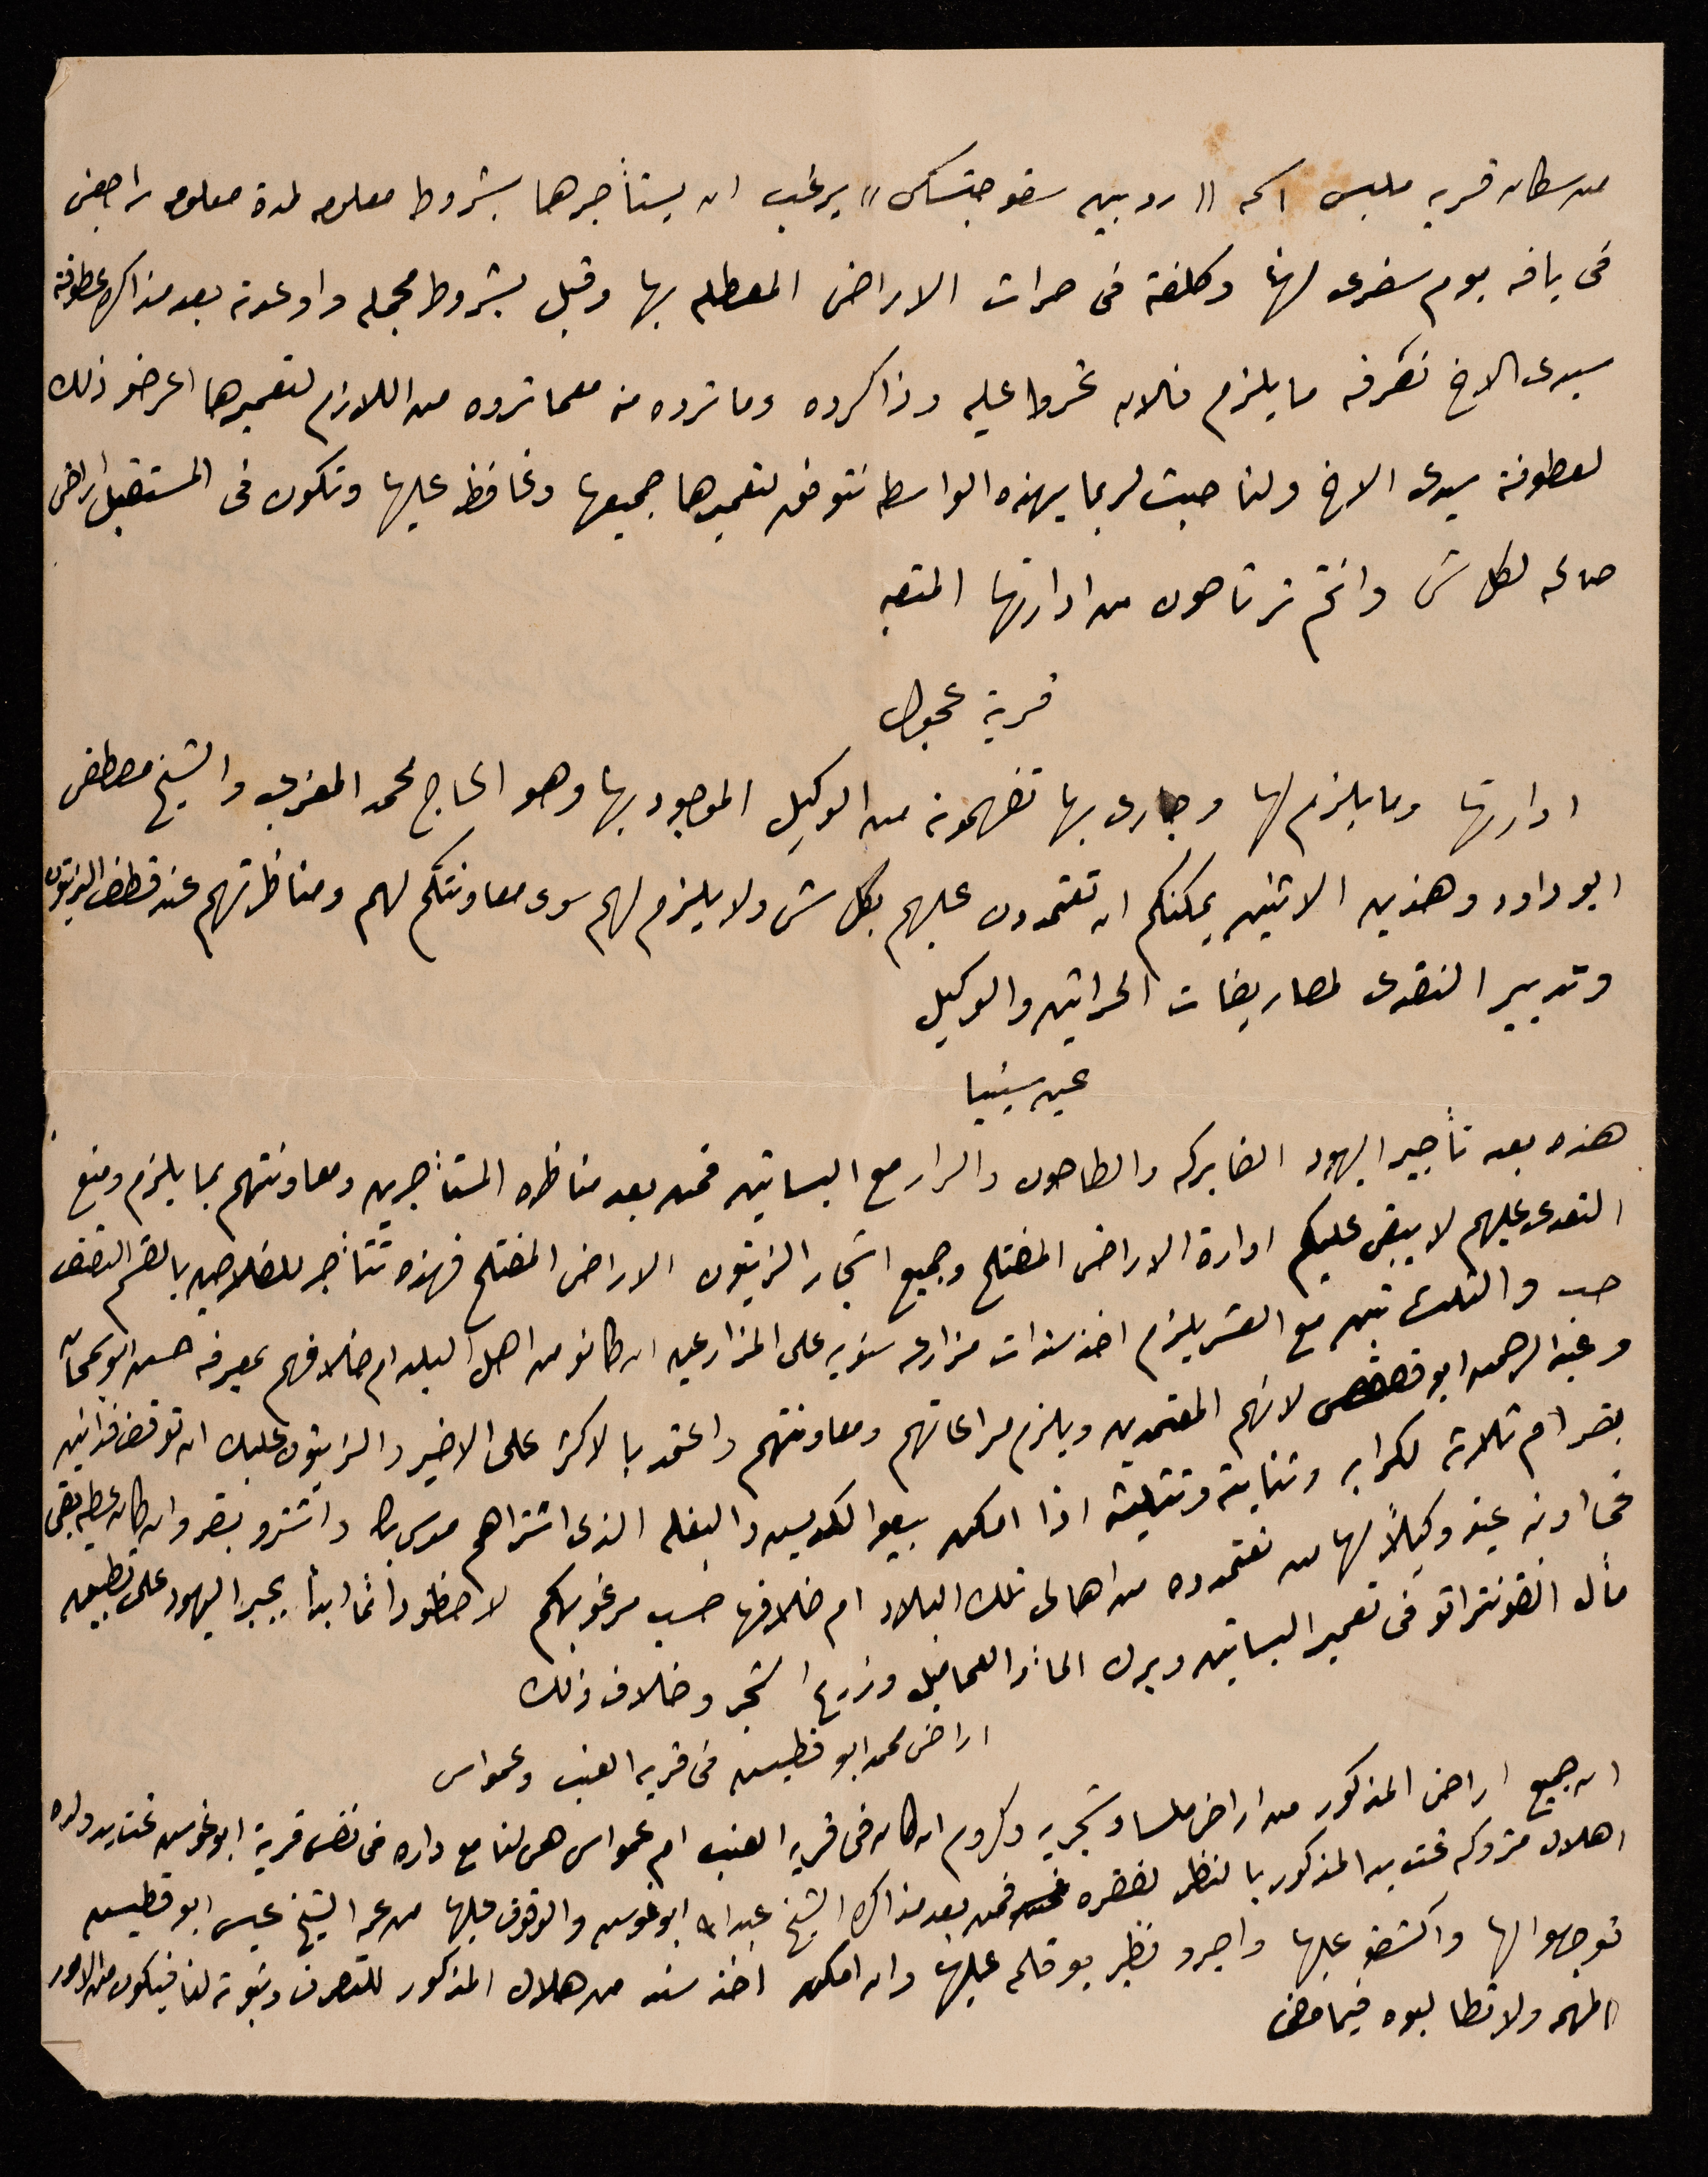 من سكان قريه ملبس اسمه "روبين سفوجتسكى" يرغب ان يستأجرها بشروط معلومه لمدة معلومه راجعنى
فى يافه يوم سفرى لهنا وكلفته فى حراث الاراضى المعطله بها وقبل بشروط مجمله واوعدته بعد مذاكرة عطوفة
سيدى الاخ نعرفه ما يلزم فالان تحروا عليه وذاكروه وما تروه منه معما تروه من اللازم لتعميرها اعرضو ذلك
لعطوفة سيدى الاخ ولنا حيث لربما بهذه الواسطه نتوفق لتعميرها جميعها ونحافظ عليها وتكون فى المستقبل اراضى
صالحه لكل شى وانتم ترتاحون من ادارتها المتعبه
قرية عجول
ادارتها وما يلزم لها وجارى بها تفهمونه من الوكيل الموجود بها وهو الحاج محمد المغربى والشيخ مصطفى
ابو داود وهذين الاثنين يمكنكم ان تعتمدون عليهم بكل شى ولا يلزم لهم سوى معاونتكم لهم ومناظرتهم عند قطف الزيتون
وتدبير النقدى لمصاريفات الحراثين والوكيل
عين سينيا
هذه بعد تأجير اليهود الفابركه والطاحون والدار مع البساتين فمن بعد مناظرة المستأجرين ومعاونتهم بما يلزم ومنع
التعدى عليهم لا يبقى عليكم ادارة الاراضى المفتلح وجميع اشجار الزيتون الاراضى المفتلح فهذه تتأجر للفلاحين بالقسم النصف
حب والثلث تبن مع العشر يلزم اخذ سندات مزارعه سنويه على المزارعين ان كانو من اهل البلد ام خلافهم بمعرفة حسن ابو
وعبد الرحمن ابو لانهم المعتمدين ويلزم مراعاتهم ومعاونتهم واعتمد بالاكثر على الاخير والزيتون عليك ان توقف فدانين
بقر ام ثلاثه لكرابه وتنايته وتتليثه اذا امكن بيعوا الكديش والبغله الذى اشتراهم موسى واشترو بقر وان كان عطيه بقى
فى عينو وكيلاً لها من تعتمدوه من اهالى تلك البلاد ام خلافها حسب مرغوبكم لاحظو دائماً ابداً يجبر اليهود على تطبيق
مأل القونتراتو فى تعمير البساتين وبرك الماء والعماميل وزرع الشجر وخلاف ذلك
اراضى محمد ابو قطيش فى قرية العنب وعمواس
ان جميع اراضى المذكور من اراضى ملسا وشجريه وكروم ان كان فى قرية العنب ام عمواس هى لنا مع داره فى نفس قرية ابو غوش تحت يد ولده
اهلال متروكه تحت يد المذكور بالنظر لفقره فمن بعد مذاكرة الشيخ عبد الله ابو غوش والوقوف عليها من عمه الشيخ عيسى ابو قطيش
توجهوا لها واكشفو عليها واجرو نظير يوقلمه عليها وان امكن اخذ سند من هلال المذكور للتصرف وثبوته لنا فيكون من الامور
المهمه ولا تطالبوه فيما مضى